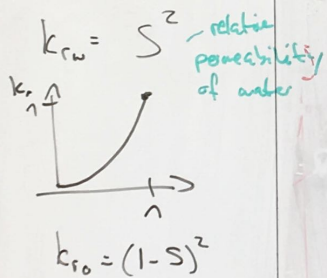 k_rw = S² relative
permeability
of water
k_r
1
1
k_ro = (1-S)²